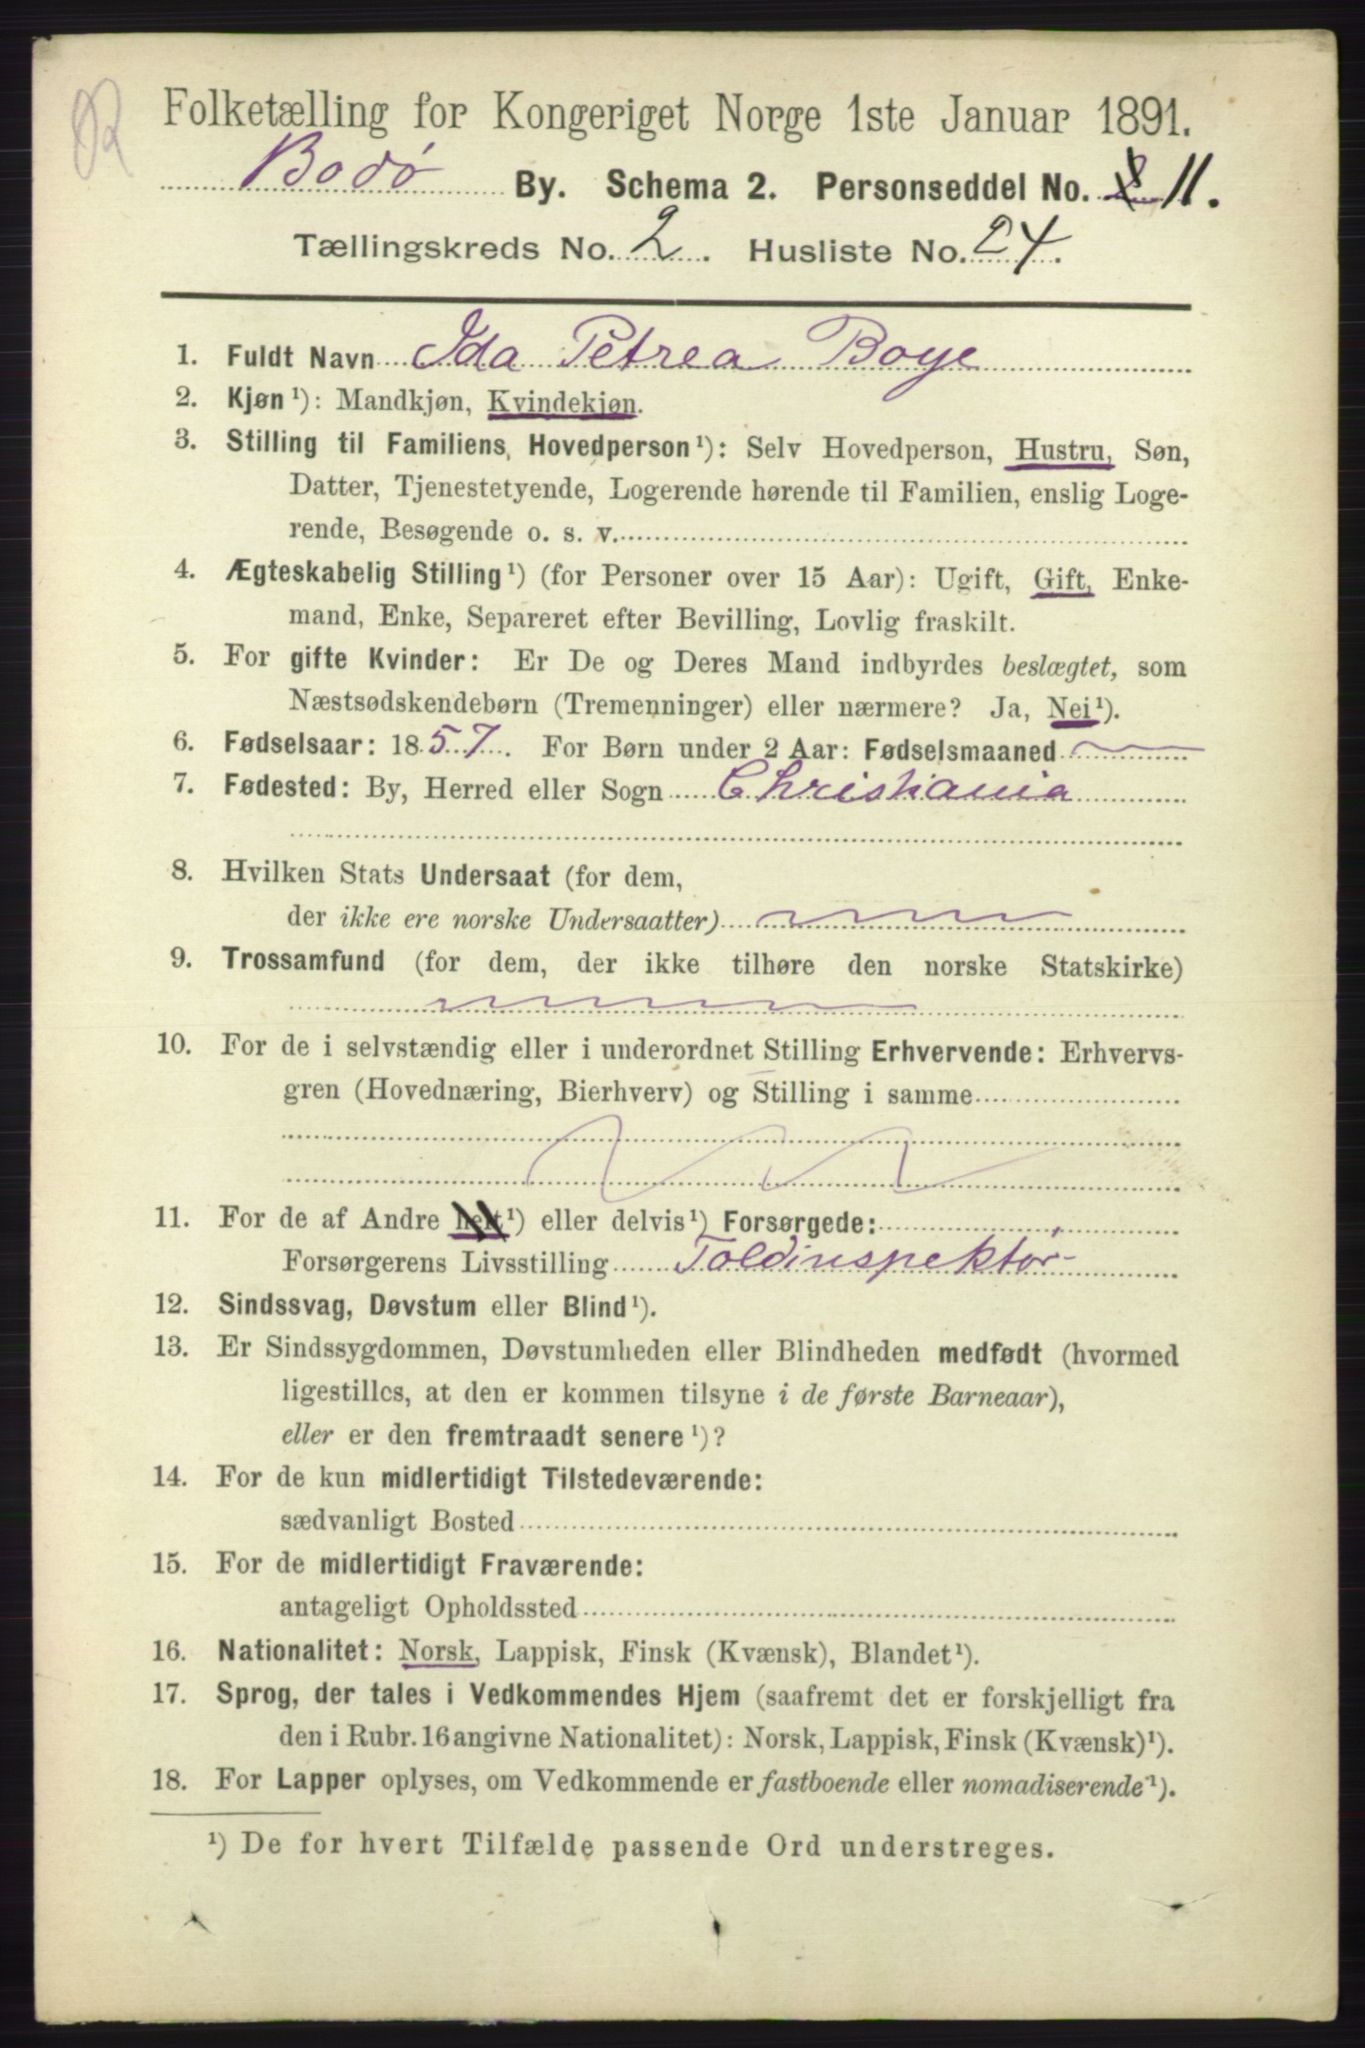 Folketælling for Kongeriget Norge 1ste Januar 1891.
Bodø By. Schema 2. Personseddel No. 11.
Tællingskreds No. 2. Husliste No. 24.
1. Fuldt Navn Ida Petrea Boye
2. Kjøn¹): Mandkjøn, Kvindekjøn.
3. Stilling til Familiens Hovedperson¹): Selv Hovedperson, Hustru, Søn,
Datter, Tjenestetyende, Logerende hørende til Familien, enslig Loge-
rende, Besøgende o. s. v.
4. Ægteskabelig Stilling¹) (for Personer over 15 Aar): Ugift, Gift, Enke-
mand, Enke, Separeret efter Bevilling, Lovlig fraskilt.
5. For gifte Kvinder: Er De og Deres Mand indbyrdes beslægtet, som
Næstsødskendebørn (Tremenninger) eller nærmere? Ja, Nei¹).
6. Fødselsaar: 1857. For Børn under 2 Aar: Fødselsmaaned
7. Fødested: By, Herred eller Sogn Christiania
8. Hvilken Stats Undersaat (for dem,
der ikke ere norske Undersaatter)
9. Trossamfund (for dem, der ikke tilhøre den norske Statskirke)
10. For de i selvstændig eller i underordnet Stilling Erhvervende: Erhvervs-
gren (Hovednæring, Bierhverv) og Stilling i samme
11. For de af Andre helt¹) eller delvis¹) Forsørgede:
Forsørgerens Livsstilling Toldinspektør
12. Sindssvag, Døvstum eller Blind¹).
13. Er Sindssygdommen, Døvstumheden eller Blindheden medfødt (hvormed
ligestilles, at den er kommen tilsyne i de første Barneaar),
eller er den fremtraadt senere¹)?
14. For de kun midlertidigt Tilstedeværende:
sædvanligt Bosted
15. For de midlertidigt Fraværende:
antageligt Opholdssted
16. Nationalitet: Norsk, Lappisk, Finsk (Kvænsk), Blandet¹).
17. Sprog, der tales i Vedkommendes Hjem (saafremt det er forskjelligt fra
den i Rubr. 16 angivne Nationalitet): Norsk, Lappisk, Finsk (Kvænsk)¹).
18. For Lapper oplyses, om Vedkommende er fastboende eller nomadiserende¹).
¹) De for hvert Tilfælde passende Ord understreges.